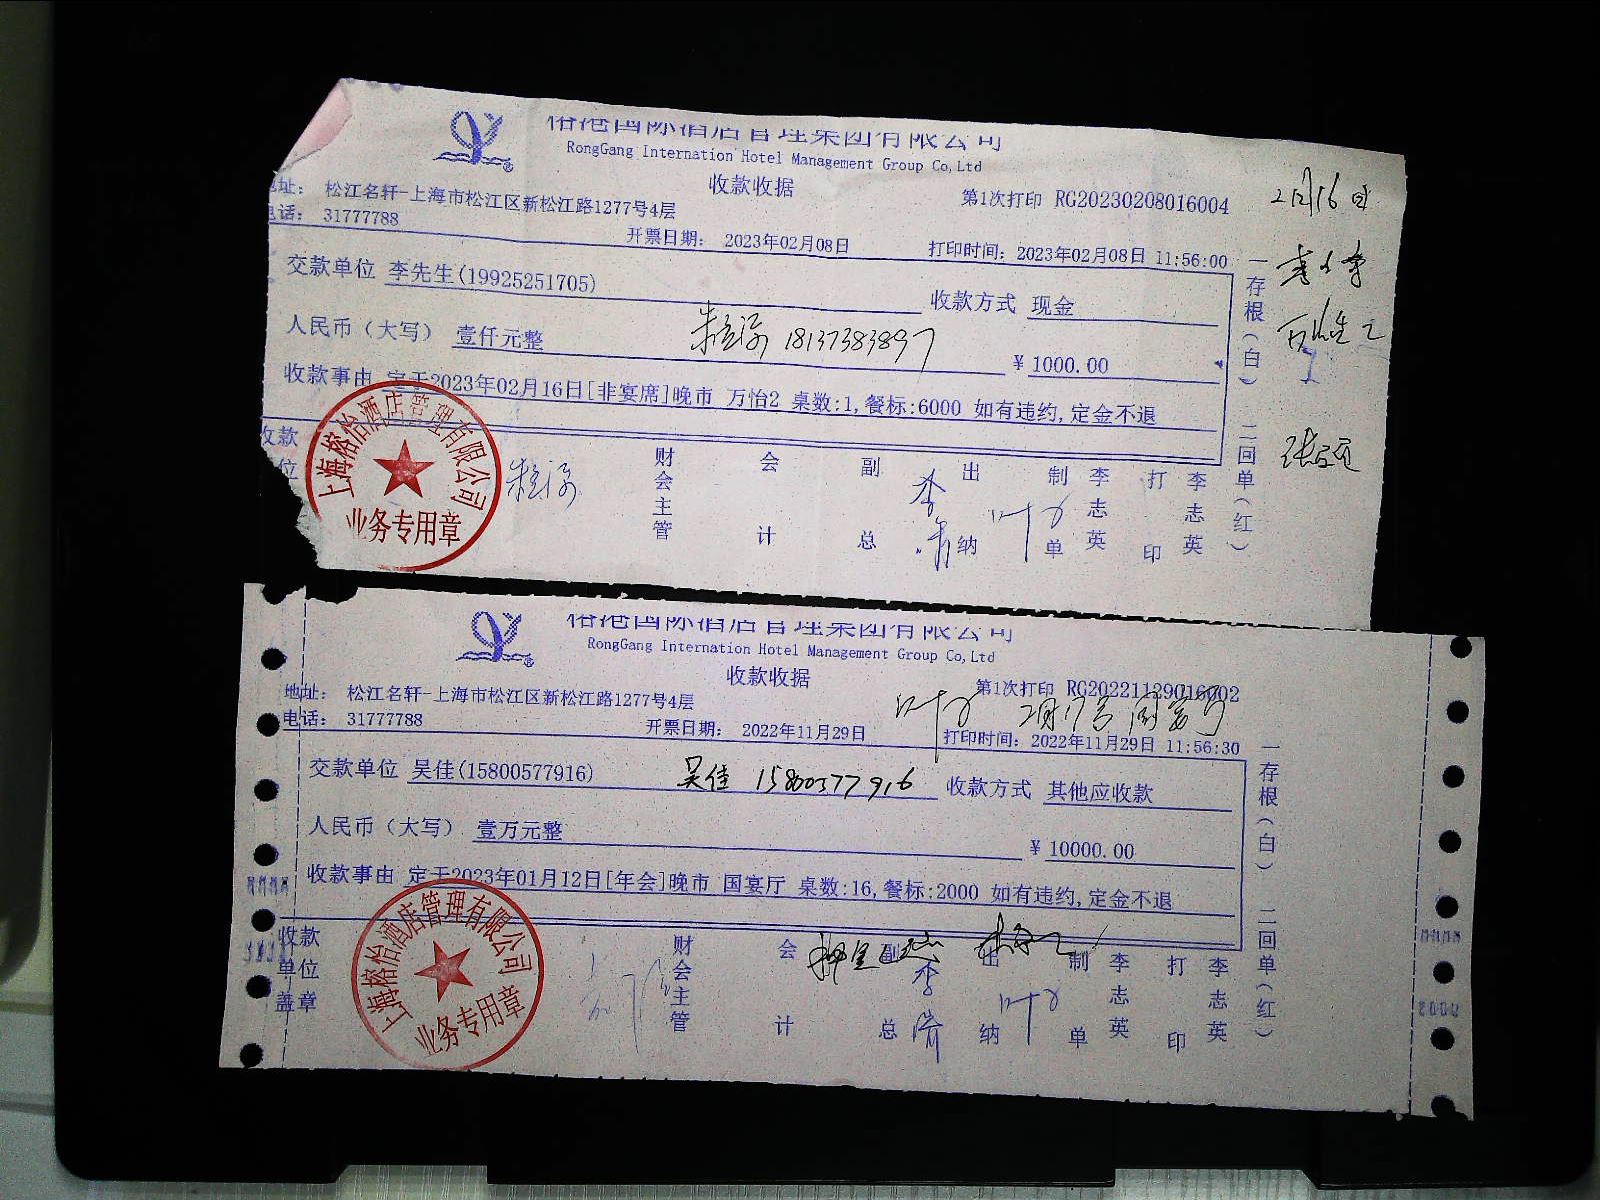 榕港国际酒店管理集团有限公司
RongGang Internation Hotel Management Group Co,Ltd
收款收据
地址： 松江名轩-上海市松江区新松江路1277号4层
第1次打印 RG20230208016004
2月16日
电话： 31777788
开票日期： 2023年02月08日
打印时间：2023年02月08日 11:56:00
交款单位 李先生(19925251705)
收款方式 现金
人民币（大写） 壹仟元整
18137383897
￥1000.00
收款事由 定于2023年02月16日[非宴席]晚市 万怡2 桌数:1,餐标:6000 如有违约,定金不退
一存根（白） 二回单（红）
收款
位
上海榕怡酒店管理有限公司
业务专用章
财会主管
会计
副总
出纳
制单
李志英
打印
李志英
榕港国际酒店管理集团有限公司
RongGang Internation Hotel Management Group Co,Ltd
收款收据
地址： 松江名轩-上海市松江区新松江路1277号4层
第1次打印 RG20221129016002
电话： 31777788
开票日期： 2022年11月29日
打印时间：2022年11月29日 11:56:30
交款单位 吴佳(15800577916)
吴佳 15800577916
收款方式 其他应收款
人民币（大写） 壹万元整
￥10000.00
收款事由 定于2023年01月12日[年会]晚市 国宴厅 桌数:16,餐标:2000 如有违约,定金不退
一存根（白） 二回单（红）
收款单位盖章
上海榕怡酒店管理有限公司
业务专用章
财会主管
会计
副总
出纳
制单
李志英
打印
李志英